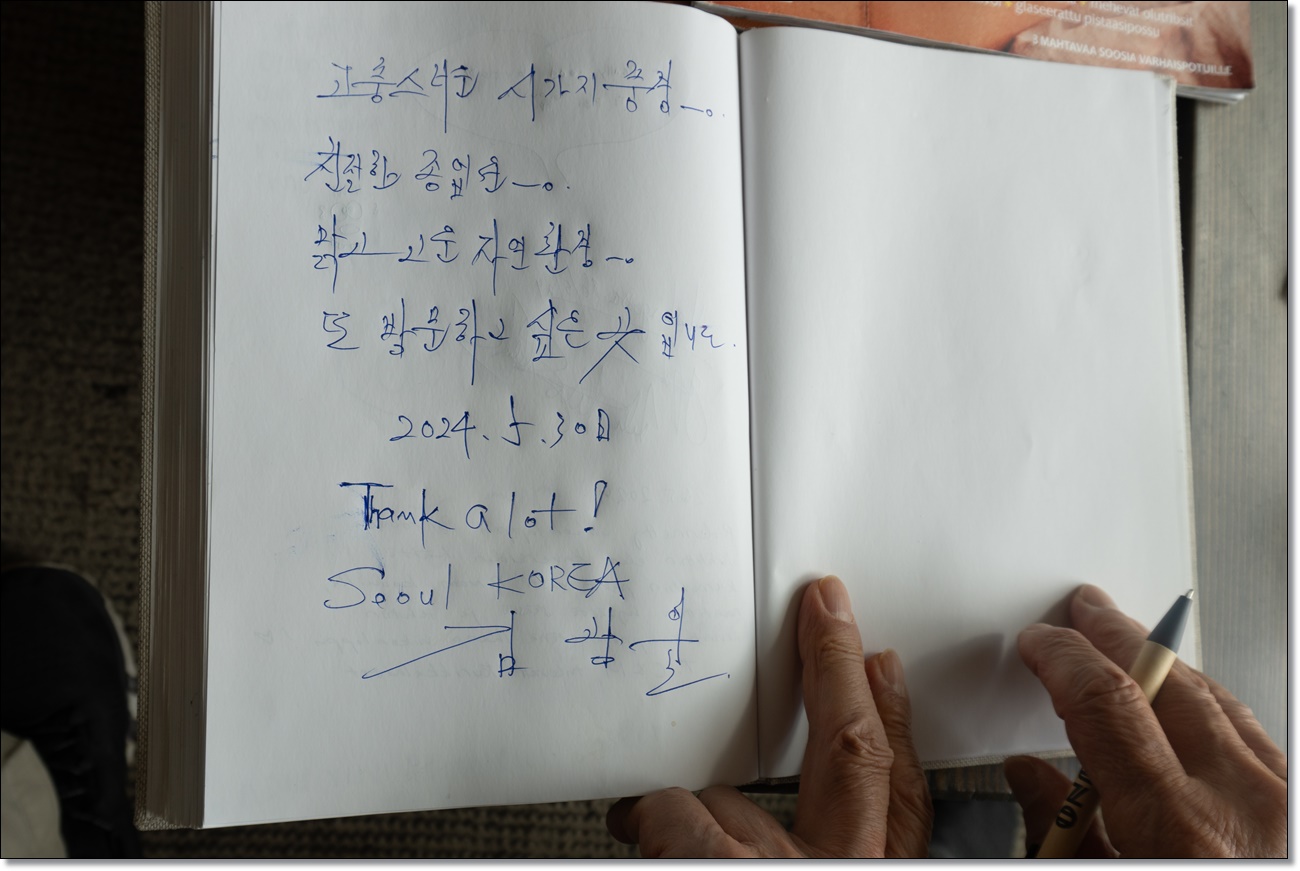 mehevät olutribsit
glaseerattu pistaasipossu
3 MAHTAVAA SOOSIA VARHAISPOTUILLE
고풍스러운 시가지 풍경 —。
친절한 종업원 —。
맑고 고운 자연환경 —。
또 방문하고 싶은 곳 입니다.
2024. 5. 30日
Thank a lot!
Seoul KOREA
김